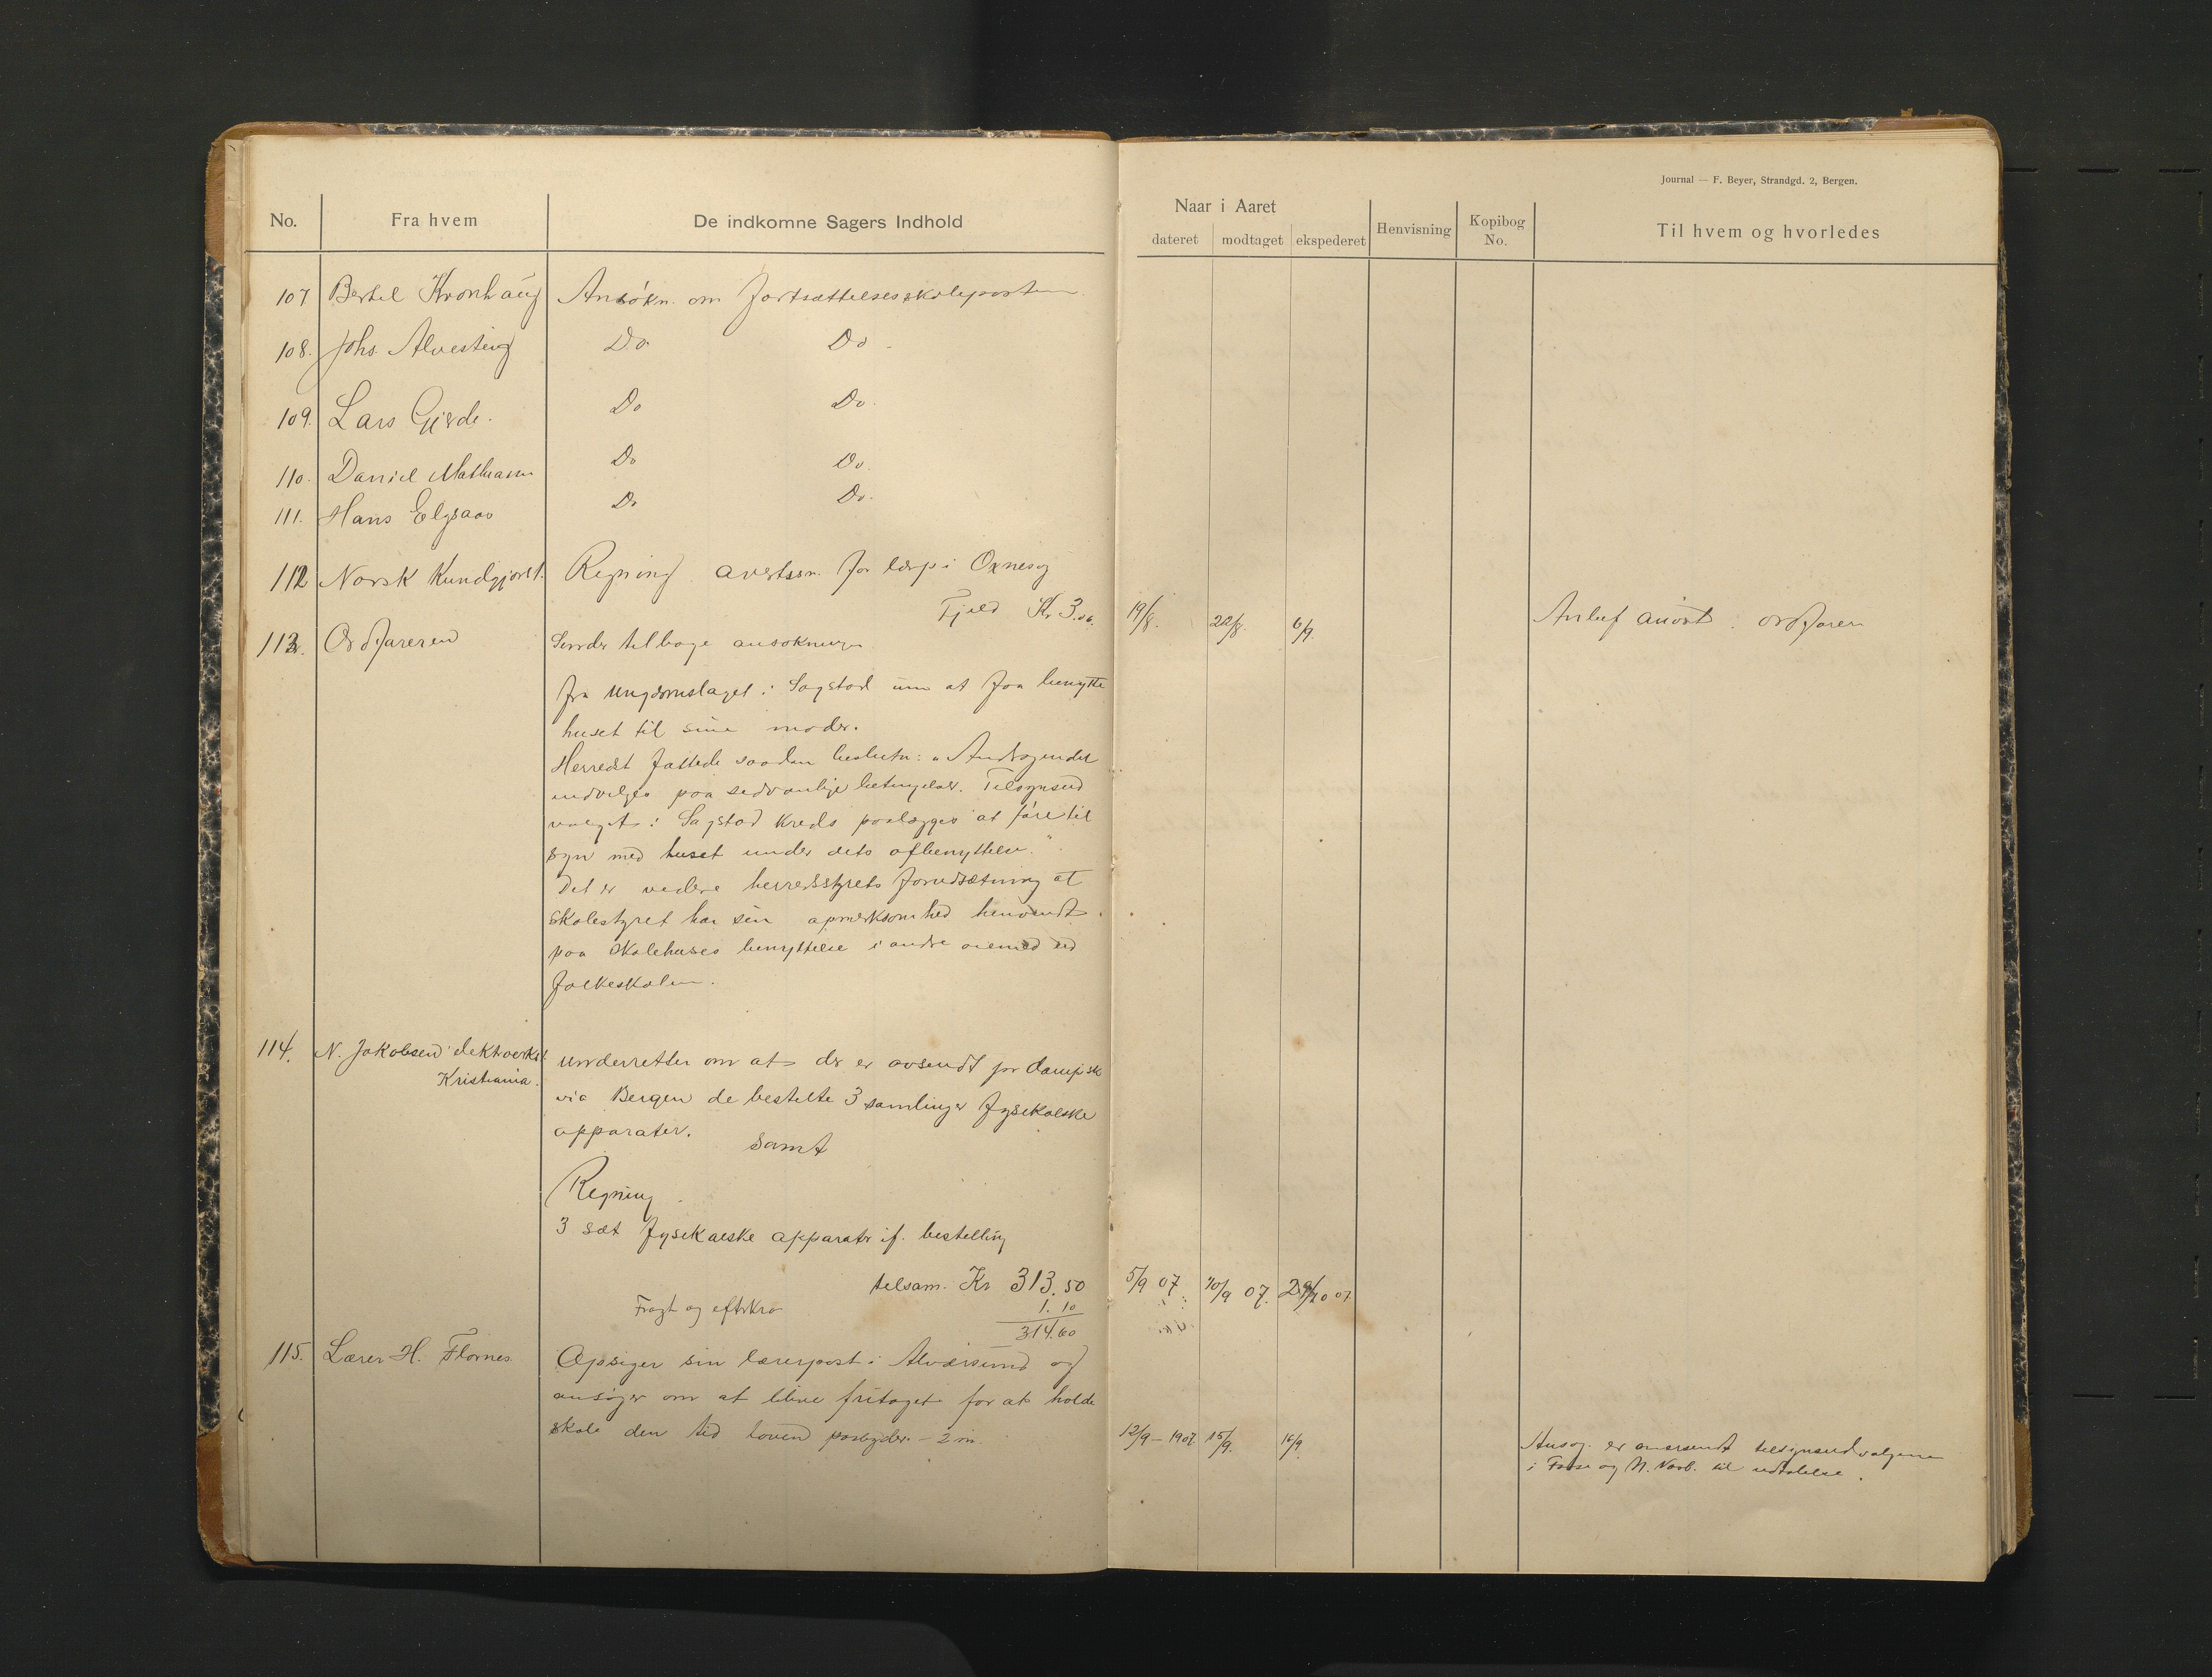 Journal — F. Beyer, Strandgd. 2, Bergen.
No. Fra hvem De indkomne Sagers Indhold
Naar i Aaret
dateret modtaget ekspederet Henvisning Kopibog No. Til hvem og hvorledes
107 Bertel Kronhaug Ansökn. om fortsættelsesskoleposten
108. Johs. Alvesteig Do Do
109. Lars Gjerde. Do Do.
110. Daniel Do Do.
111. Hans Elgsaas Do Do.
112 Norsk Kundgjörel. Regning avertssm. for lærp i Oxnes og
Fjeld Kr 3.00. 19/8. 22/8. 6/9. ordföreren
113. Ordføreren Sender tilbage ansøkningen
fra Ungdomslaget i Sagstad um at faa benytte
huset til sine møder.
Herredst fattede saadan beslutn: "Andragendet
indvilges paa sedvanlige betingelser. Tilsynsud
valget i Sagstad Kreds paalægges at føre til
syn med huset under dets afbenyttelse."
Det er videre herredsstyrets forudsætning at
skolestyret har sin opmerksomhed henvendt
paa skolehuses benyttelse i andre øiemed end
folkeskolen.
114. N. Jakobsen elektverkst
Kristiania.
underretter om at der er avsendt pr dampsk
via Bergen de bestelte 3 samlinger fysikalske
apparater. samt
Regning
3 sæt fysikalske apparater if. bestelling
tilsam. Kr 313.50 5/9 07. 10/9 07. 29/10 07
Fragt og efterkra 1.10
314.60
115. Lærer H. Flornes. Opsiger sin lærerpost i Alversund og
ansøger om at blive fritaget for at holde
skole den tid loven paabyder – 2 m. 12/9 – 1907. 15/9. 16/9.
Ansøg. er oversendt tilsynsudvalgene
i Fosse og N. til udtalelse.